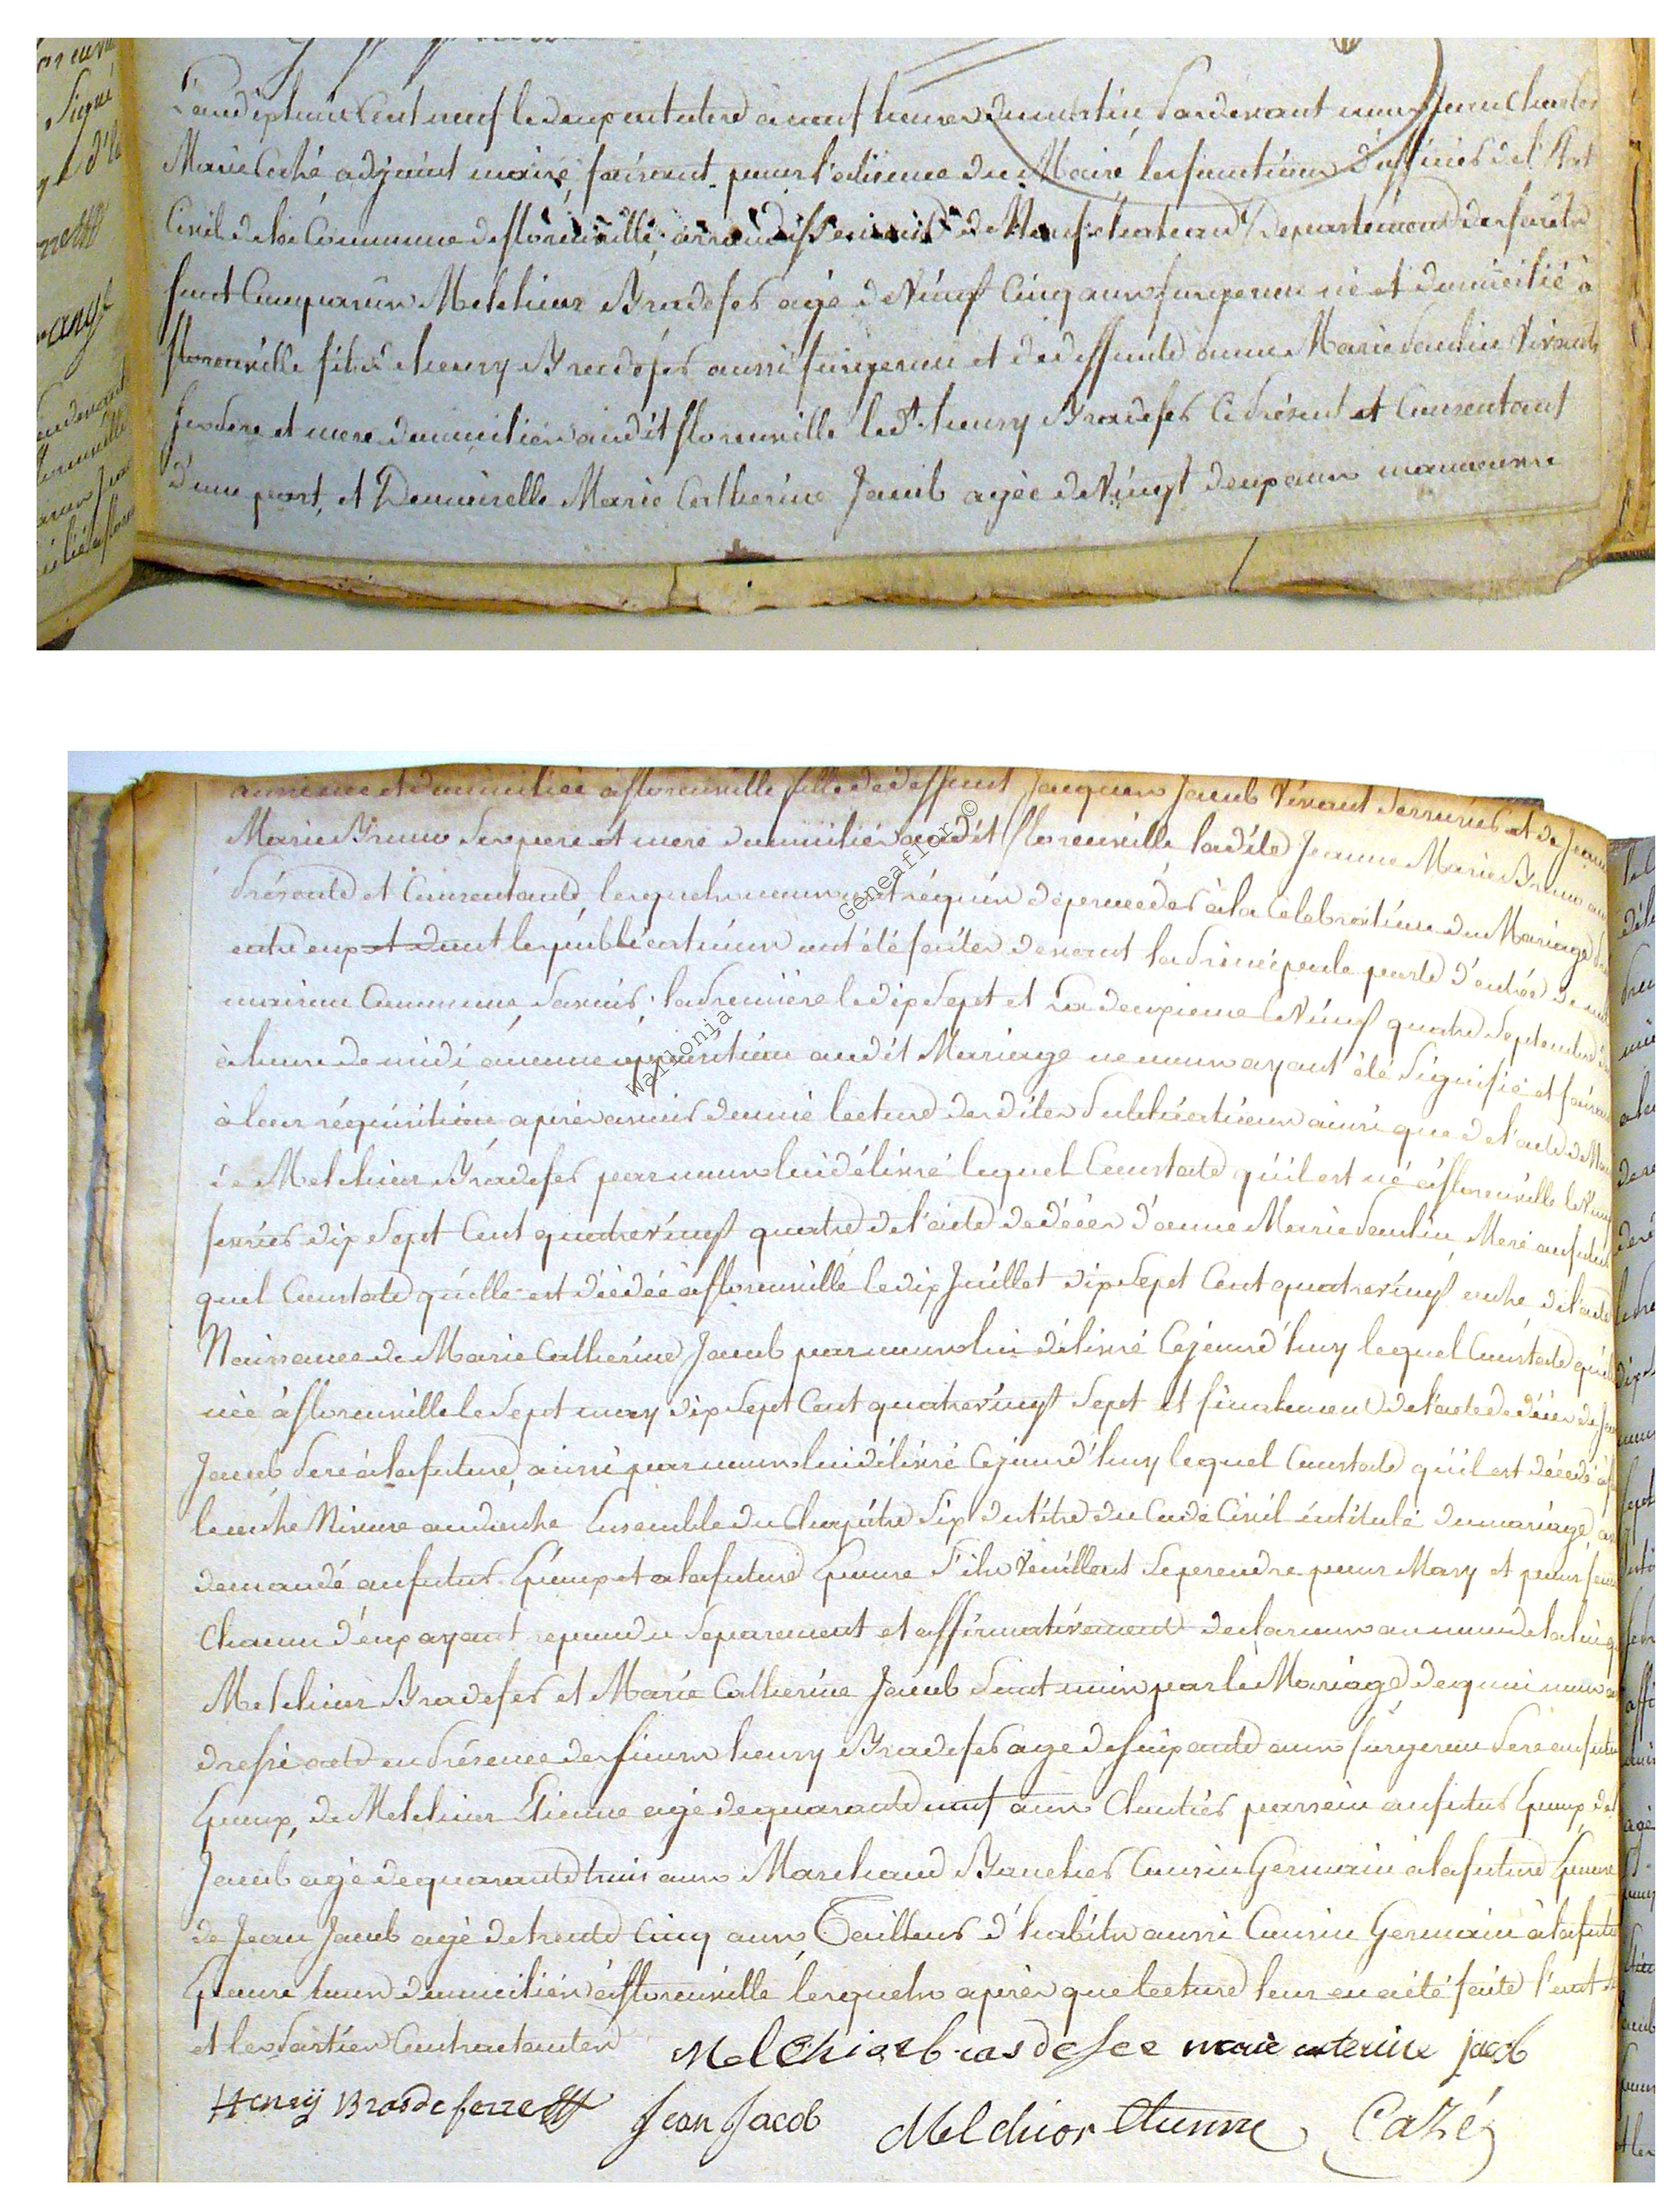 L'an dix huit Cent neuf le deux octobre à neuf heures du matin, Pardevant nous Jean Charles
Marie Cazé adjoint maire, faisant pour l'absence du Maire les fonctions d'officier de l'Etat
Civil de la Commune de florenville, arrondissement de Neufchateau Département des forêts
sont Comparus Melchior Bradefer agé de vingt Cinq ans forgeron né et domicilié à
florenville fils d'henry Bradefer aussi forgeron et de deffunte anne Marie Paulin vivante
ses pere et mere domiciliés audit florenville led.t henry Bradefer Ci présent et Consentant
d'une part, et Demoiselle Marie Catherine Jacob agée de vingt deux ans
née et domiciliée à florenville fille de deffunt Jacques Jacob vivant Serrurier et de Jeanne
Marie Bruno Ses pere et mere domiciliés audit florenville ladite Jeanne Marie Bruno
Présente et Consentante, lesquels nous ont réquis de proceder à la Celebration du Mariage
entre eux et dont les publications ont été faites devant la Principale porte d'entrée de
maison Commune, Savoir; la Premiere le dix Sept et La deuxieme le vingt quatre Septembre
à heure de midi aucune opposition audit Mariage ne nous ayant été Signifié et faisant
à leur réquisition après avoir donné lecture desdites Publications ainsi que de l'acte de
de Melchior Bradefer par nous lui délivré lequel Constate qu'il est né à florenville le vingt
fevrier dix Sept Cent quatrevingt quatre de l'acte de décès d'anne Marie Paulin Mere au futur
quel Constate qu'elle est décédée à florenville le dix Juillet dix Sept Cent quatrevingt onze de l'acte
Naissance de Marie Catherine Jacob par nous lui délivré Cejourd'huy lequel Constate qu'elle
née à florenville le Sept may dix Sept Cent quatrevingt Sept et finalement de l'acte de décès de
Jacob Pere à la future, aussi par nous lui délivré Cejourd'huy lequel Constate qu'il est décedé à
le onze Nivose an onze Ensemble du Chapitre Six du titre du Code Civil intitulé du mariage,
demandé au futur Epoux et a la future Epouse S'ils veuillent Se prendre pour Mary et pour femme
Chacun d'eux ayant repondu Separement et affirmativement declarons au nom de la loi que
Melchior Bradefer et Marie Catherine Jacob Sont unis par le Mariage de quoi nous
dressé acte en Présence des sieurs henry Bradefer agé de soixante ans forgeron Pere au futur
Epoux, de Melchior Etienne agé de quarante neuf ans Cloutier parrein au futur Epoux de
Jacob agé de quarante trois ans Marchand Boucher Cousin Germain à la future Epouse
de Jean Jacob agé de trente Cinq ans Tailleur d'habits aussi Cousin Germain à la future
Epouse tous domiciliés à florenville lesquels après que lecture leur en a été faite l'ont
et les Parties Contractantes Melchior bras de fer marie caterine jacob
Henrij Bras de ferre Jean Jacob Melchior Etienne Cazé
Wallonia Geneaflor ©